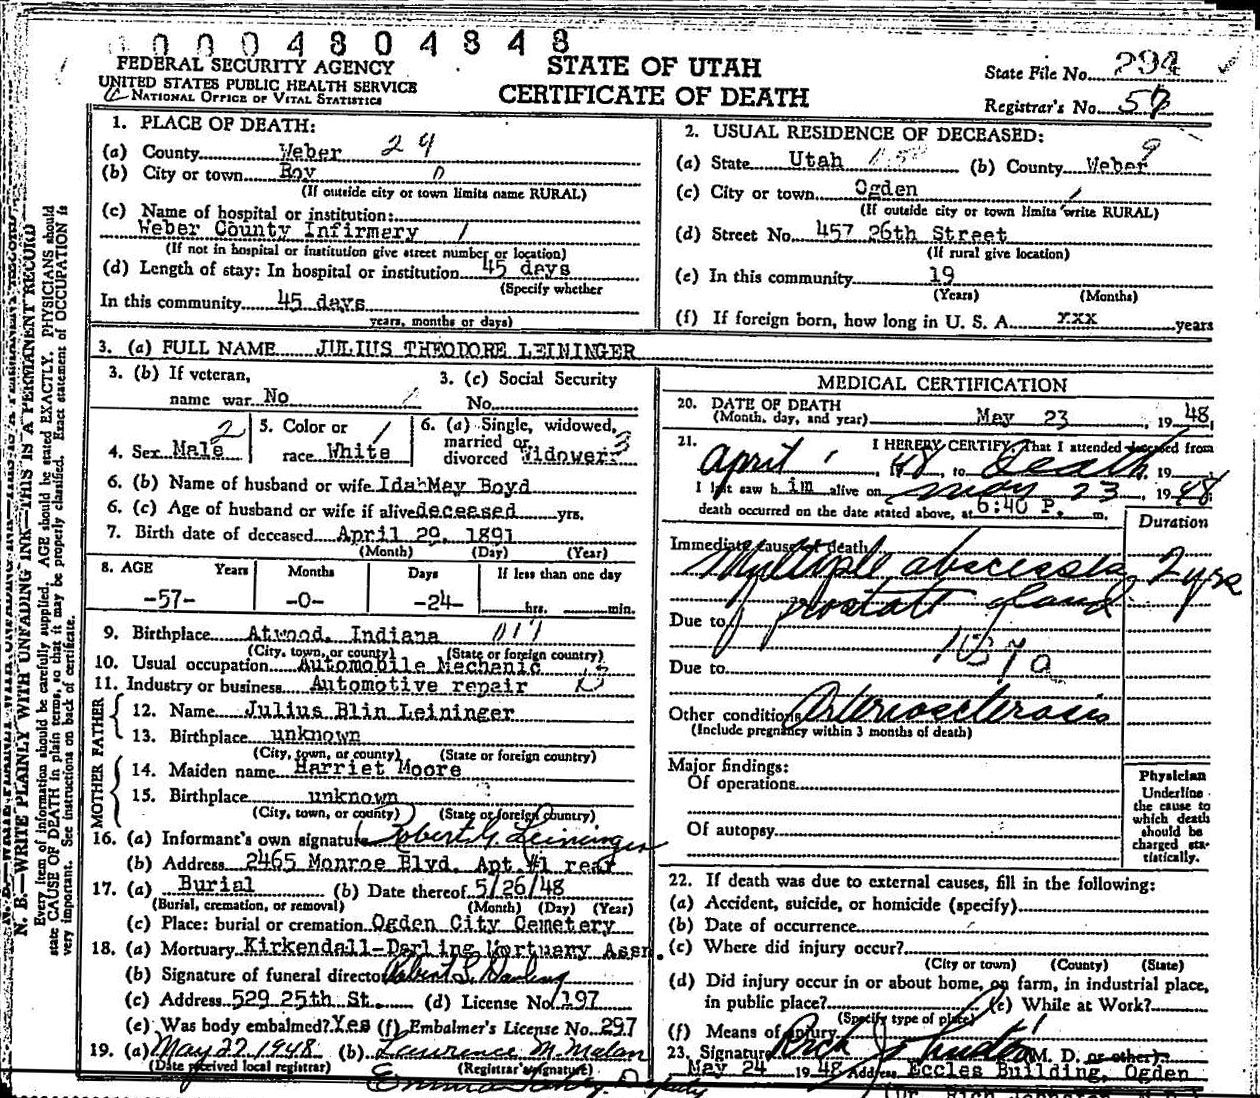 0 0 0 0 4 8 0 4 8 4 8
FEDERAL SECURITY AGENCY
UNITED STATES PUBLIC HEALTH SERVICE
NATIONAL OFFICE OF VITAL STATISTICS
STATE OF UTAH
CERTIFICATE OF DEATH
State File No. 294
Registrar's No.
1. PLACE OF DEATH:
(a) County Weber 29
(b) City or town Roy 0
(If outside city or town limits name RURAL)
(c) Name of hospital or institution:
Weber County Infirmery 1
(If not in hospital or institution give street number or location)
(d) Length of stay: In hospital or institution 45 days
(Specify whether
In this community 45 days
years, months or days)
2. USUAL RESIDENCE OF DECEASED:
(a) State Utah (b) County Weber 9
(c) City or town Ogden
(If outside city or town limits write RURAL)
(d) Street No. 457 26th Street
(If rural give location)
(e) In this community 19
(Years) (Months)
(f) If foreign born, how long in U. S. A. xxx years
3. (a) FULL NAME JULIUS THEODORE LEININGER
3. (b) If veteran,
name war No
3. (c) Social Security
No.
4. Sex Male 2
5. Color or
race White 1
6. (a) Single, widowed,
married or
divorced Widower 3
6. (b) Name of husband or wife Ida May Boyd
6. (c) Age of husband or wife if alive deceased yrs.
7. Birth date of deceased April 29, 1891
(Month) (Day) (Year)
8. AGE Years Months Days If less than one day
-57- -0- -24- hrs. min.
9. Birthplace Atwood, Indiana 017
(City, town, or county) (State or foreign country)
10. Usual occupation Automobile Mechanic
11. Industry or business Automotive repair
FATHER
12. Name Julius Blin Leininger
13. Birthplace unknown
(City, town, or county) (State or foreign country)
MOTHER
14. Maiden name Harriet Moore
15. Birthplace unknown
(City, town, or county) (State or foreign country)
16. (a) Informant's own signature Robert G. Leininger
(b) Address 2465 Monroe Blvd. Apt #1 rear
17. (a) Burial (b) Date thereof 5/26/48
(Burial, cremation, or removal) (Month) (Day) (Year)
(c) Place: burial or cremation Ogden City Cemetery
18. (a) Mortuary Kirkendall-Darling Mortuary Assn.
(b) Signature of funeral director Robert L. Darling
(c) Address 529 25th St. (d) License No. 197
(e) Was body embalmed? Yes (f) Embalmer's License No. 297
19. (a) May 27, 1948 (b) Lawrence M. Malan
(Date received local registrar) (Registrar's signature)
Deputy
MEDICAL CERTIFICATION
20. DATE OF DEATH
(Month, day, and year) May 23, 1948
21. I HEREBY CERTIFY: That I attended deceased from
April 1, 48, to Death, 19
I last saw him alive on May 23, 1948
death occurred on the date stated above, at 6:40 P. m.
Duration
Immediate cause of death
Multiple abscesses, 2 yrs
prostatt gland
Due to
Due to
Other conditions Arteriosclerosis
(Include pregnancy within 3 months of death)
Major findings:
Of operations
Of autopsy
Physician
Underline
the cause to
which death
should be
charged sta-
tistically.
22. If death was due to external causes, fill in the following:
(a) Accident, suicide, or homicide (specify)
(b) Date of occurrence
(c) Where did injury occur?
(City or town) (County) (State)
(d) Did injury occur in or about home, on farm, in industrial place,
in public place? (e) While at Work?
(Specify type of place)
(f) Means of injury
23. Signature Rich Johnston (M. D. or other)
May 24 1948 Address Eccles Building, Ogden
(Dr. Rich Johnston, M.D.)
N. B.—WRITE PLAINLY WITH UNFADING INK—THIS IS A PERMANENT RECORD
Every item of information should be carefully supplied. AGE should be stated EXACTLY. PHYSICIANS should
state CAUSE OF DEATH in plain terms, so that it may be properly classified. Exact statement of OCCUPATION is
very important. See instructions on back of certificate.